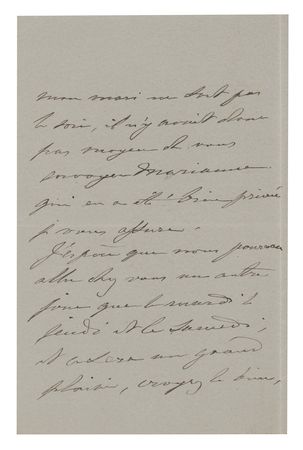 mon mari ne sort pas
le soir, il n'y avait donc
pas moyen de vous
envoyer Marianne
qui en a été bien privée
je vous assure.
J'espère que nous pourrons
aller chez vous un autre
jour que le mardi le
jeudi et le samedi,
et ce sera un grand
plaisir, croyez le bien,